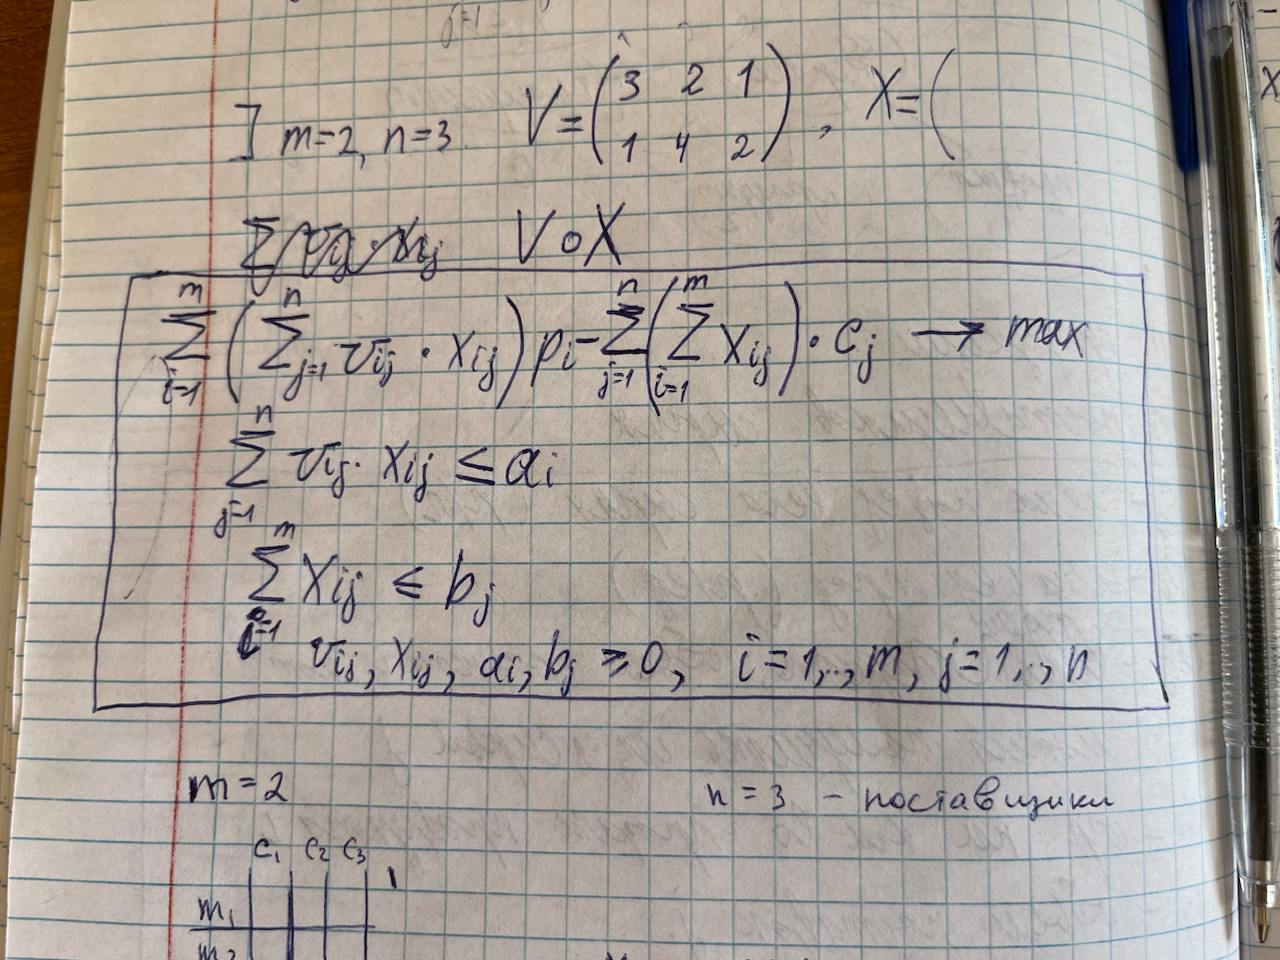 ] m=2, n=3. V = (3 2 1; 1 4 2), X = (
V∘X
∑_{i=1}^{m} (∑_{j=1}^{n} v_{ij} · x_{ij}) p_i − ∑_{j=1}^{n} (∑_{i=1}^{m} x_{ij}) · c_j → max
∑_{j=1}^{n} v_{ij} · x_{ij} ≤ a_i
∑_{i=1}^{m} x_{ij} ≤ b_j
v_{ij}, x_{ij}, a_i, b_j ≥ 0, i=1,..,m, j=1,..,n
m=2 n=3 – поставщики
c₁ c₂ c₃
m₁
m₂